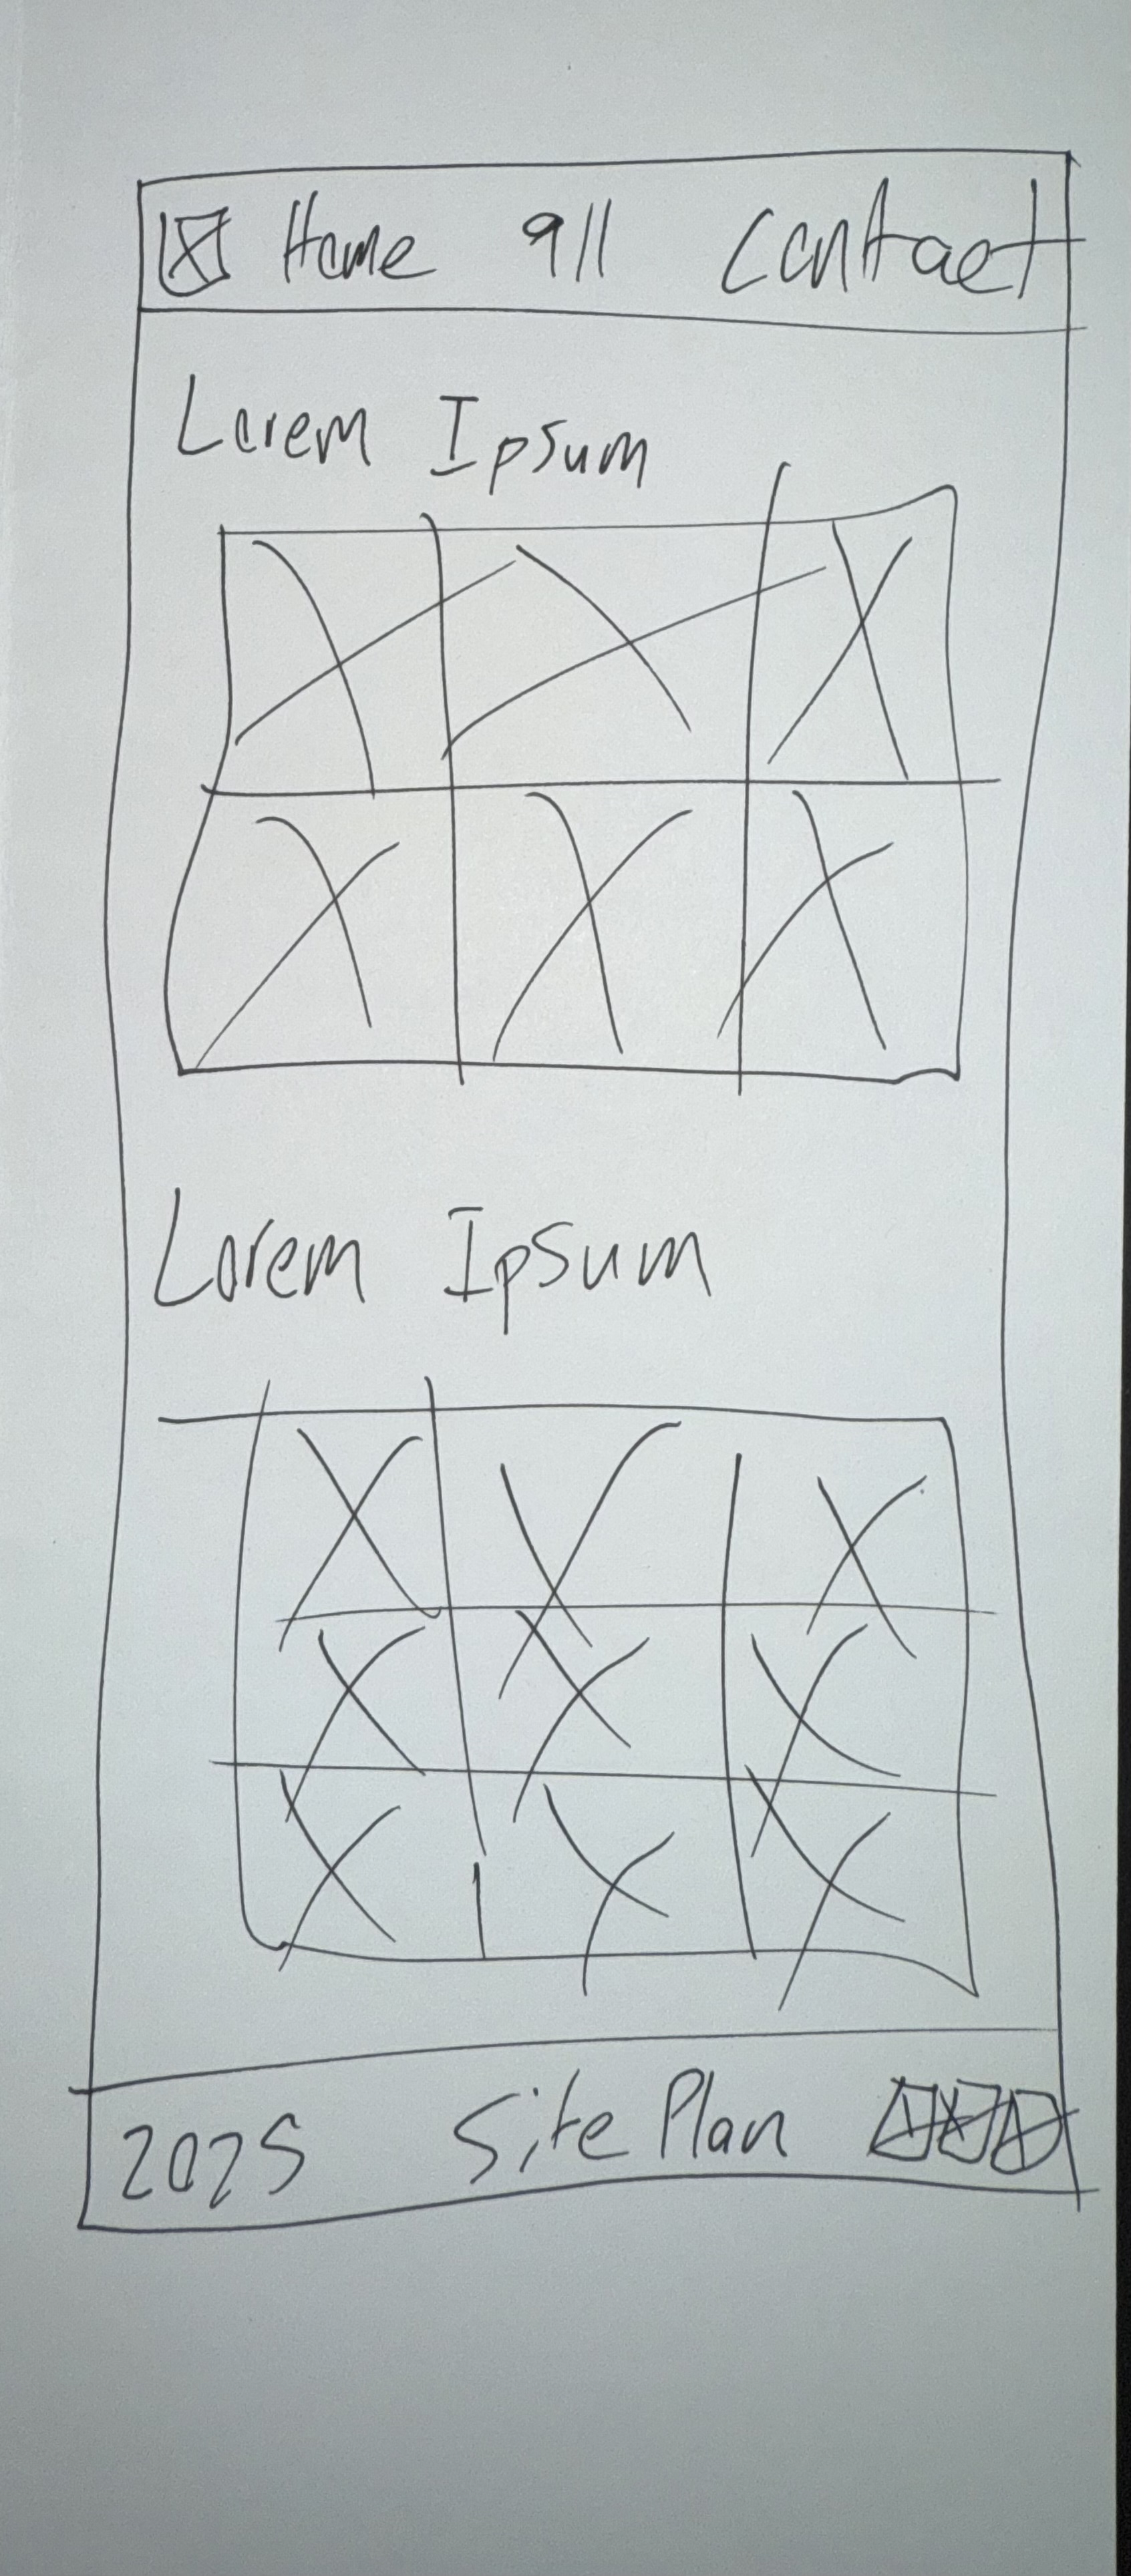 Home 911 Contact
Lorem Ipsum
Lorem Ipsum
2025 Site Plan